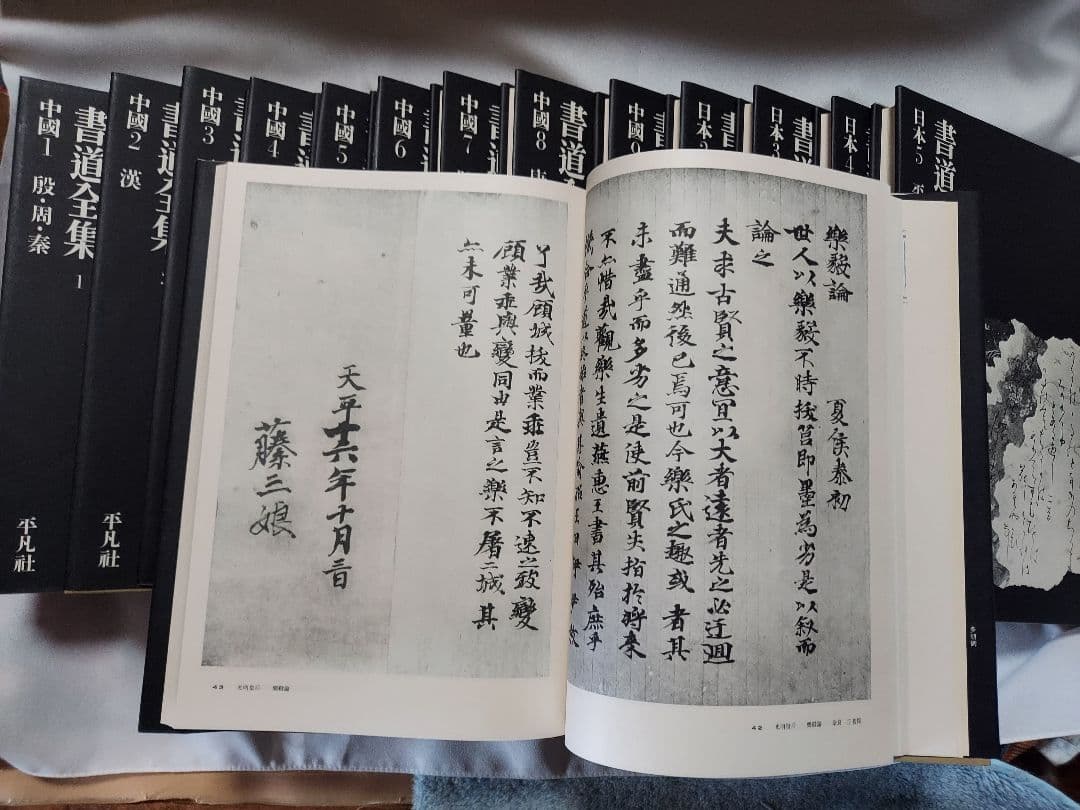 書道全集 1
中國1 殷・周・秦
平凡社
書道全集
中國2 漢
平凡社
書
中國3
中國4
中國5
中國6
中國7
書道全
中國8
日本3
日本4
書道
日本5
樂毅論 夏侯泰初
世人以樂毅不時拔莒即墨為劣是以叙而
論之
夫求古賢之意宜以大者遠者先之必迂迴
而難通然後已焉可也今樂氏之趣或者其
未盡乎而多劣之是使前賢失指於將來
不亦惜哉觀樂生遺燕惠王書其殆庶乎
42 光明皇后 樂毅論 奈良 正倉院
丫哉顧城拔而業乖豈不知不速之致變
顧業乖與變同由是言之樂不屠二城其
亦未可量也
天平十六年十月三日
藤三娘
43 光明皇后 樂毅論